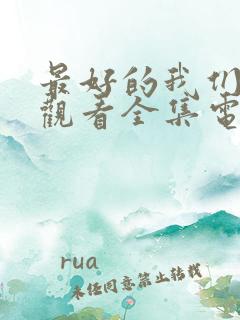 最好的我们
觀看全集電
rua
未经同意禁止转载